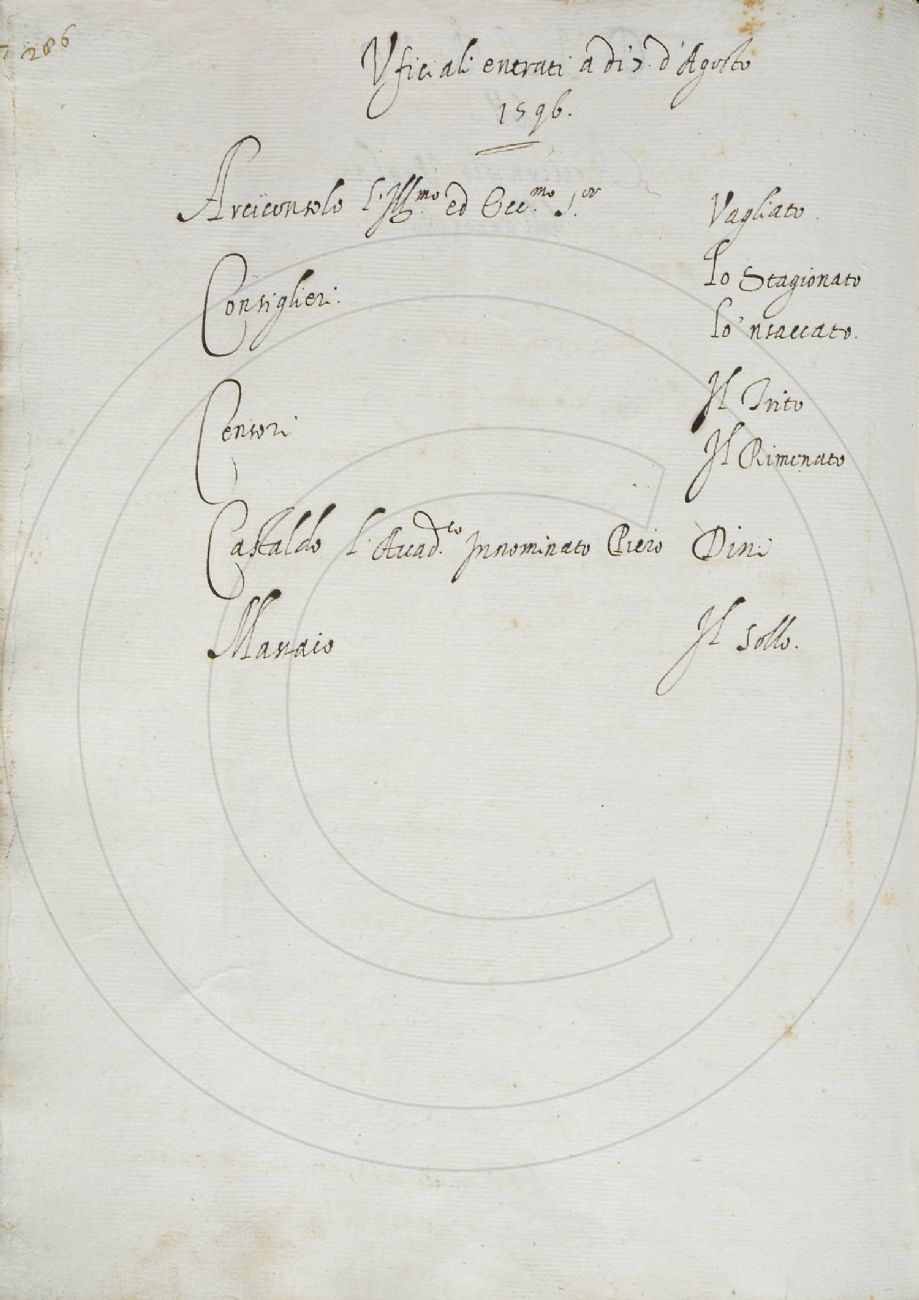 286
Uficiali entrati a di 7. d'Agosto
1596.
Arciconsolo l'Ill.mo ed Ecc.mo S.or Vagliato.
Consiglieri. Lo Stagionato
Lo 'nsaccato.
Censori Il Trito
Il Rimenato
Castaldo l'Accad.co Innominato Piero Dini
Massaio Il Sollo.